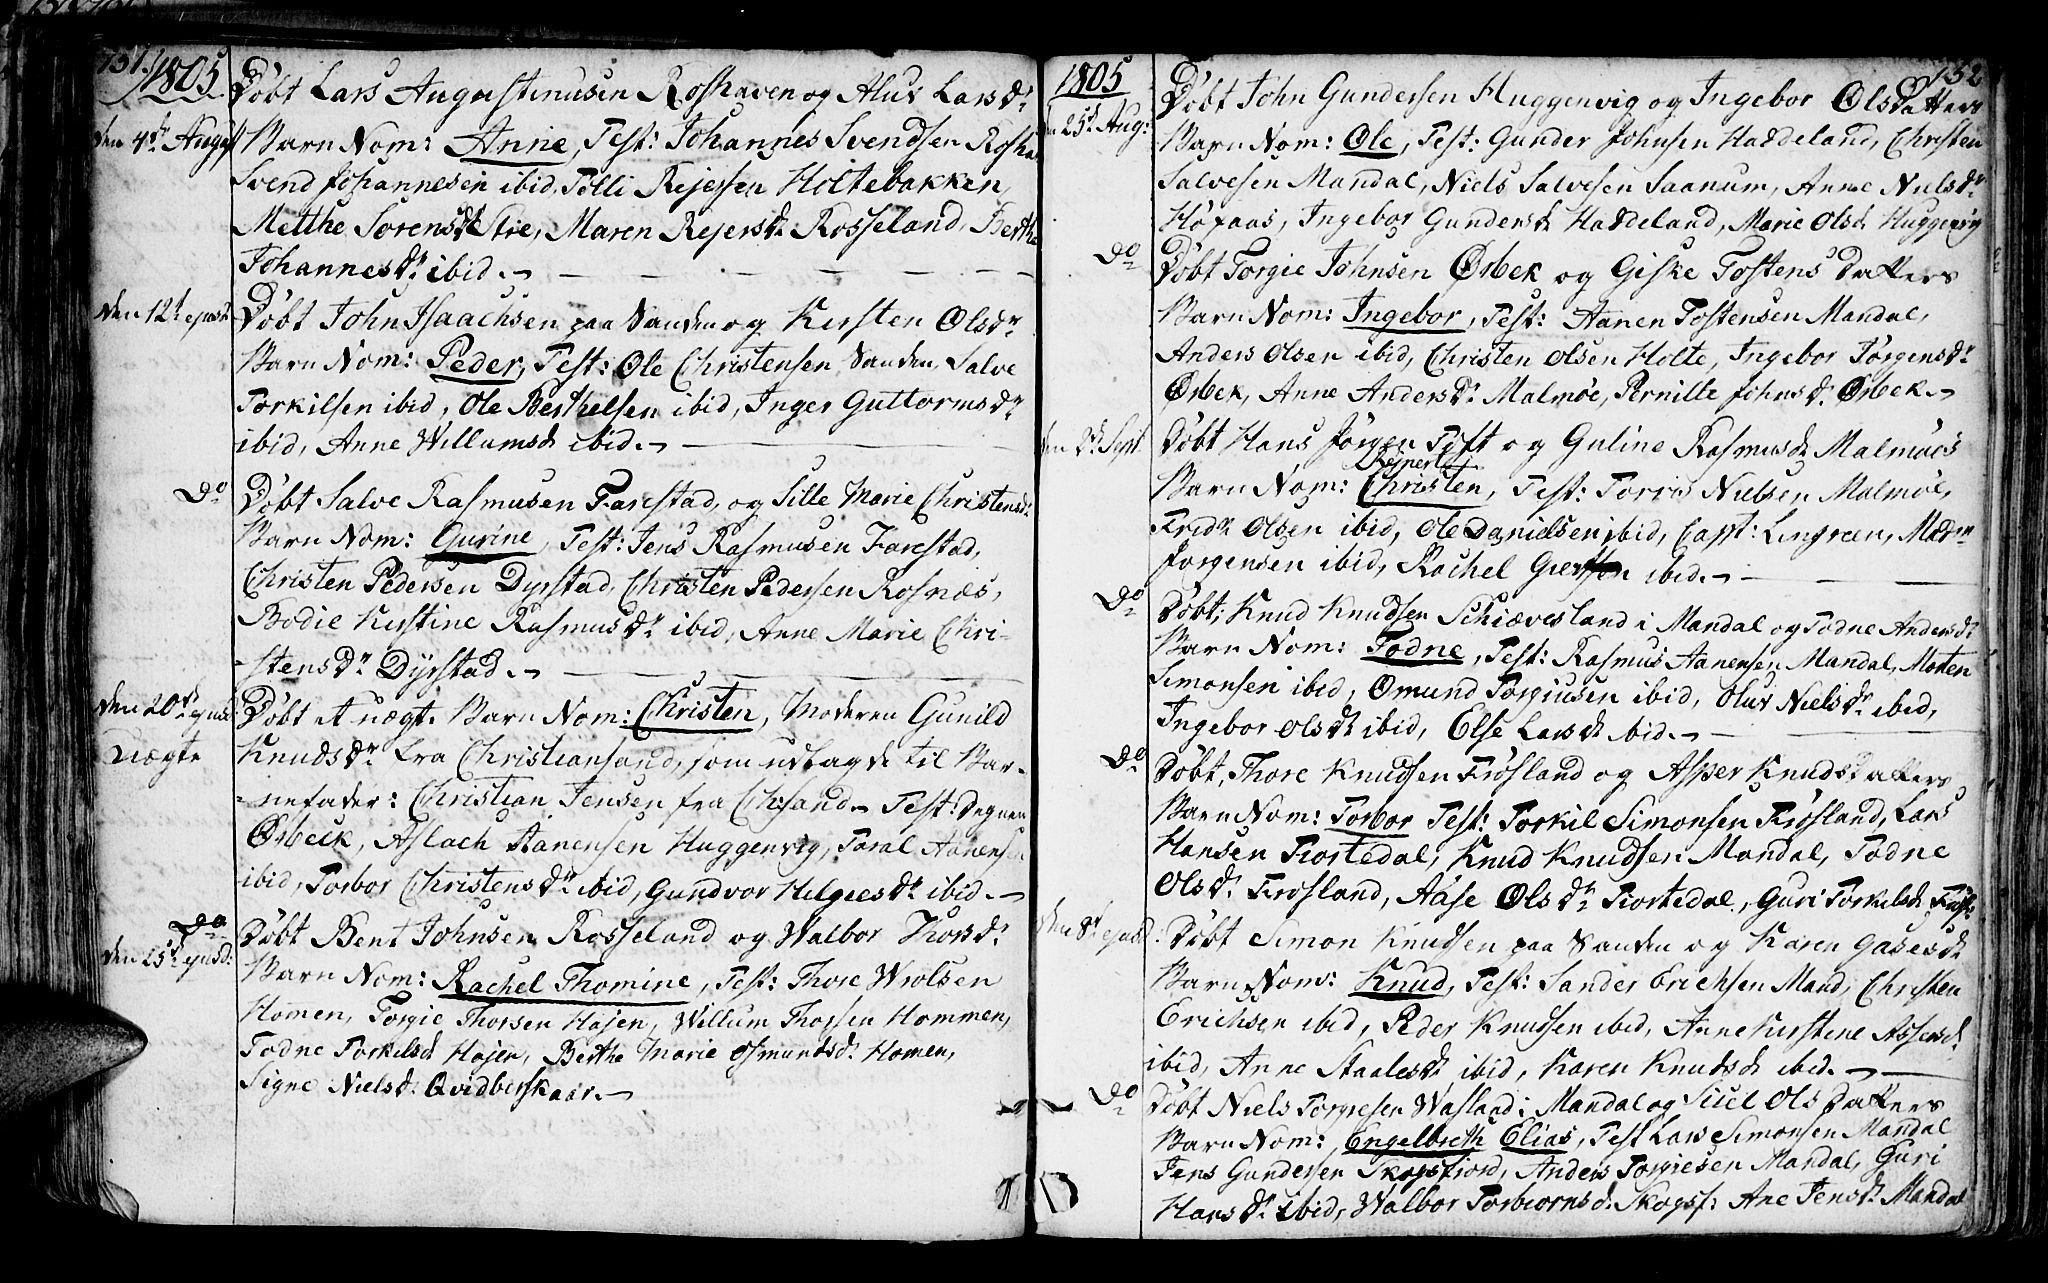 131. 1805
Døbt Lars Augustinusen Roshaven og Aluv Larsdr
den 4de Augu Barn Nom: Anne, Test: Johannes Svendsen Roshav
Svend Johannesen ibid, Tolli Rejersen Holtebakken,
Metthe Sørensd Stie, Maren Rejersdr Rosseland, Berthe
Johannesdr ibid.
den 12te ejusd: Døbt John Isaachsen paa Sanden og Kirsten Olsdr
Barn Nom: Peder, Test: Ole Christensen Sanden, Salve
Torkilsen ibid, Ole Berthelsen ibid, Inger Guttormsdr
ibid, Anne Willumsd ibid.
Do Døbt Salve Rasmusen Farestad, og Sille Marie Christensd:
Barn Nom: Gurine, Test: Jens Rasmusen Farestad,
Christen Pedersen Dyrstad, Christen Pedersen Rosnes,
Bodie Kirstine Rasmusdr ibid, Anne Marie Chri-
stensdr Dyrstad.
den 20de ejusd: Døbt et uægte Barn Nom: Christen, Moderen Gunild
Uægte Knudsdr fra Christiansand, som udlagde til Bar-
nefader: Christian Jensen fra Chsand. Test: Degnen
Ørbeck, Aslach Aanensen Huggenvig, Taral Aanensen
ibid, Torbor Christensdr ibid, Gundvor Helgeesdr ibid.
Do
den 25de ejusd: Døbt Bent Johnsen Rosseland og Walbor Thorsdr
Barn Nom: Rachel Thomine, Test: Thore Wrolsen
Homen, Torgie Thorsen Højen, Willum Thorsen Hommen,
Todne Torkelsd Højen, Berthe Marie Osmundsd: Homen,
Signe Nielsd: Qvidberskaar.
1805 132
Døbt John Gundersen Huggenvig og Ingebor Olsdatters
den 25de Aug: Barn Nom: Ole, Test: Gunder Johnsen Haddeland, Christen
Salvesen Mandal, Niels Salvesen Saanum, Anne Nielsdr
Høyaas, Ingebor Gundersd Haddeland, Marie Olsd Huggenvig
Do Døbt Torgie Johnsen Ørbek og Giske Tostens Datters
Barn Nom: Ingebor, Test: Aanen Tostensen Mandal,
Anders Olsen ibid, Christen Olsen Holte, Ingebor Jørgensdr
Ørbek, Anne Andersdr Malmøe, Pernille Johnsdr Ørbek.
den 2de Sept Døbt Hans Jørgen Toft og Guline Rasmusd Malmøes
Rejnert
Barn Nom: Christen, Test: Torris Nielsen Malmøe,
Fridr Olsen ibid, Ole Danielsen ibid, Capt: Lingreen, Madm
Jørgensen ibid, Rachel ibid.
Do Døbt, Knud Knudsen Schiævesland i Mandal og Todne Andersd:
Barn Nom: Todne, Test: Rasmus Aanensen Mandal, Morten
Simonsen ibid, Omund Torgiusen ibid, Oluv Nielsdr ibid,
Ingebor Olsdr ibid, Else Larsd ibid.
Do Døbt, Thore Knudsen Frøsland og Asper Knudsdatters
Barn Nom: Torbor Test: Torkil Simonsen Frøsland, Lars
Hansen Tiortedal, Knud Knudsen Mandal, Todne
Olsdr Frøsland, Aase Olsdr Tiortedal, Guri Torkelsd Frøsl:
den 8de ejusd: Døbt Simon Knudsen paa Sanden og Karen Gasesd
Barn Nom: Knud, Test: Sander Erichsen Mand, Christen
Erichsen ibid, Peder Knudsen ibid, Anne Kirstene Assersd
ibid, Anne Staalesdr ibid, Karen Knudsd ibid.
Do Døbt Niels Torgiesen Wasland i Mandal og Siiel Olsdatters
Barn Nom: Engelbreth Elias, Test Lars Simonsen Mandal
Jens Gundersen Skogsfiord, Anders Torgiesen Mandal, Guri
Hansdr ibid, Walbor Torbiornsd: Skogsf: Ane Jensdr Mandal